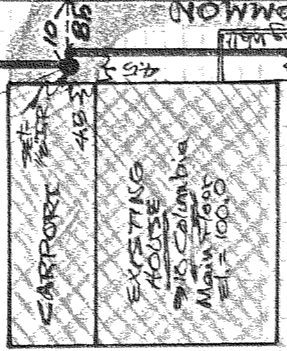 COMMON
10
85
4.5
4.83
SET
CARPORT
EXISTING
HOUSE
Columbia
Main Floor
El. = 100.0